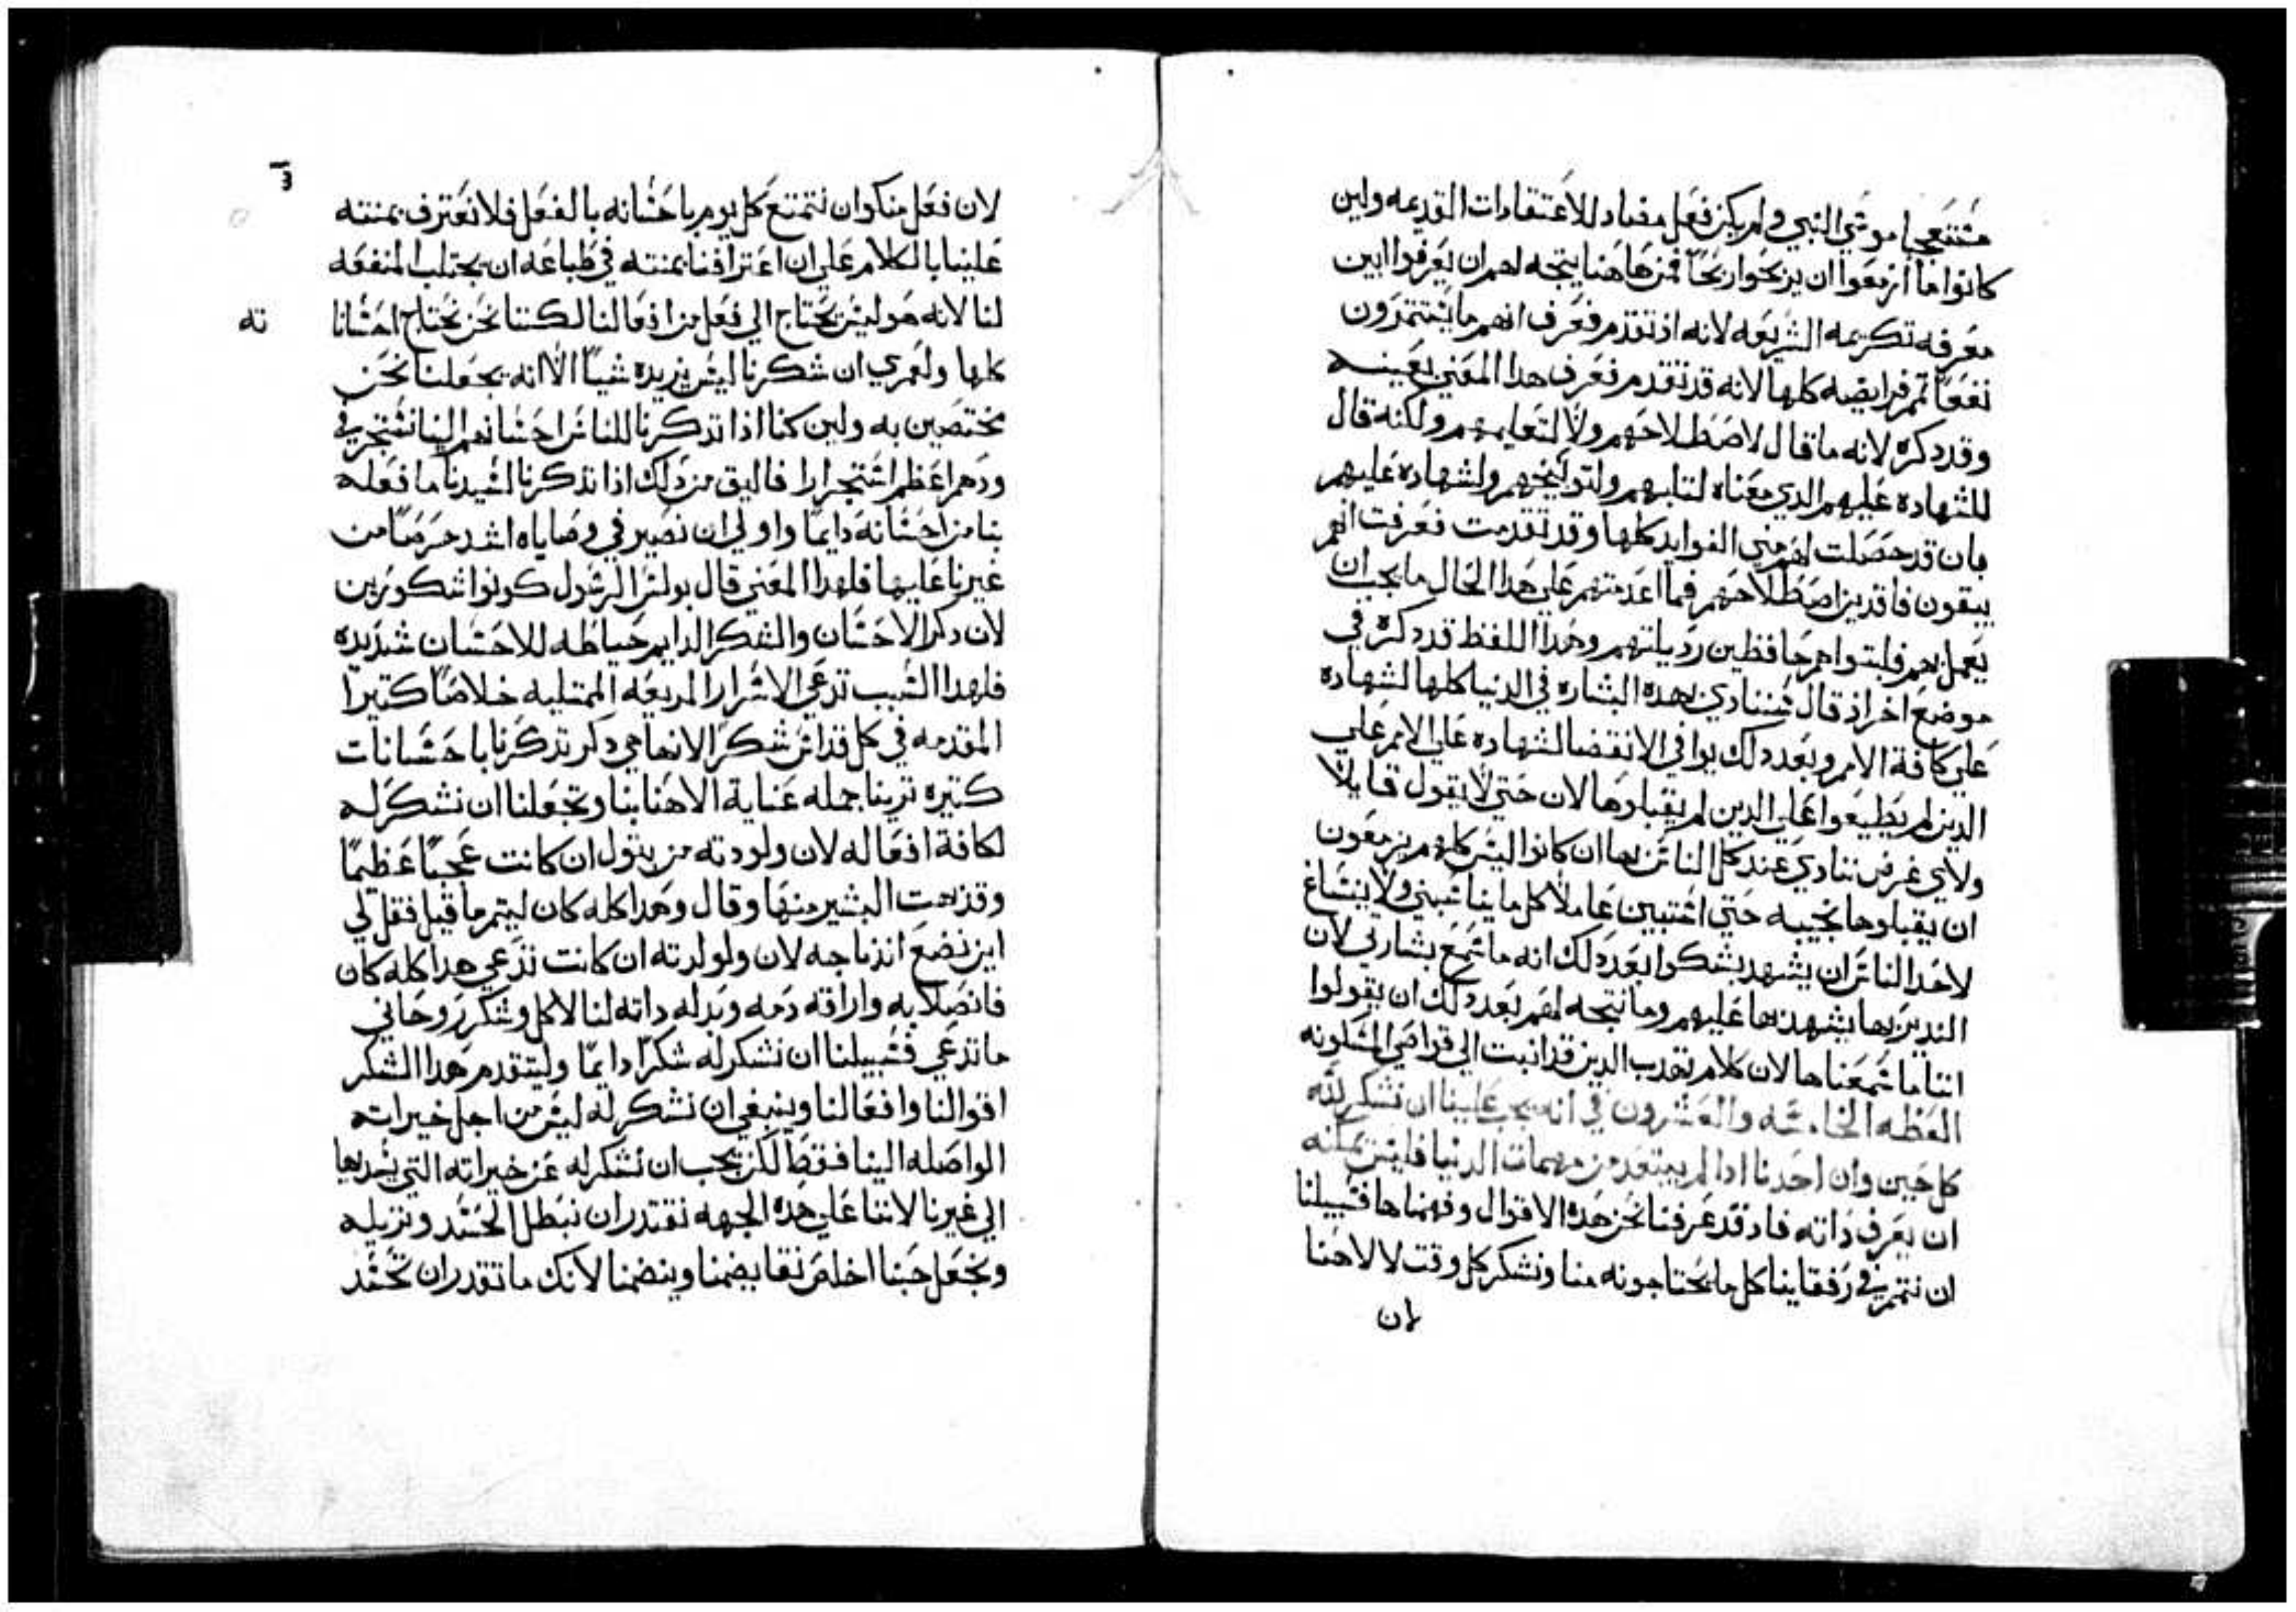 مستنعجبا موسي النبي ولم يكن فعل مضاد للاعتقادات القديمه ولين
كانوا ما ازمعوا ان يربحوا ربحا فمن هاهنا يتجه لهم ان يعرفوا ابين
معرفه تكريمه الشريعه لانه اذ تقدم فعرف انهم ما يستثمرون
نفعا تمم فرايضه كلها لانه قد تقدم فعرف هدا المعني بعينه
وقد دكره لانه ما قال لاصطلاحهم ولا لتعليمهم ولكنه قال
للشهاده عليهم الدي معناه لتلبهم ولتوبيخهم ولشهاده عليهم
بان قد حصلت لهم مني الفوايد كلها وقد تقدمت فعرفت انهم
يبقون فاقدين اصطلاحهم فما اعدمتهم علي هدا الحال ما يجب ان
يعمل بهم فلبتوا هم حافظين رديلتهم وهدا اللفظ قد دكره في
موضع اخر اذ قال سننادي بهده البشاره في الدنيا كلها لشهاده
علي كافة الامم وبعد دلك يوافي الانقضا لشهاده علي الامم علي
الدين لم يطيعوا علي الدين لم يقبلوها لان حتي لا يقول قايلا
ولاي غرض ننادي عند كل الناس بها ان كانوا ليس كلهم يزمعون
ان يقبلوها نجيبه حتي استبين عاملا كل ما يناسبني ولا ينساغ
لاحد الناس ان يشهد بشكوا بعد دلك انه ما سمع بشارتي لان
الندير بها يشهد بها عليهم وما يتجه لهم بعد دلك ان يقولوا
اننا ما سمعناها لان كلام تهدب الدين قد انبت الي قراصي المسكونه
العظه الخامسه والعشرون في انه يجب علينا ان نشكر لله
كل حين وان احدنا ادا لم يبتعد من مهمات الدنيا فليس يمكنه
ان يعرف داته فاد قد عرفنا نحن هده الاقوال وفهمناها فسبيلنا
ان نتمم في رفقاينا كل ما يحتاجونه منا ونشكر كل وقت لالاهنا
لان
لان فعل منكر ان نتمتع كل يوم باحسانه بالفعل فلا نعترف بمنته
علينا بالكلام علي ان اعترافنا بمنته في طباعه ان يجتلب المنفعه
لنا لانه هو ليس يحتاج الي فعل من افعالنا لكننا نحن نحتاج احساناته
كلها ولعمري ان شكرنا ليس يزيده شيا الا انه يجعلنا نحن
مختصين به ولين كنا اذا تدكرنا للناس احسانهم الينا نستجر في
ودهم اعظم استجرارا فاليق من دلك اذا تدكرنا لسيدنا ما فعله
بنا من احسانه دايما واولي ان نصير في وصاياه اشد حرصا من
غيرنا عليها فلهدا المعني قال بولس الرسول كونوا شكورين
لان دكر الاحسان والشكر الدايم حياطه للاحسان شديده
فلهدا السبب تدعي الاسرار المريعه الممتليه خلاصا كتيرا
المقدمه في كل قداس شكر الانها هي دكر تدكرنا باحسانات
كتيره ترينا جمله عناية الاهنا بنا وتجعلنا ان نشكر له
لكافة افعاله لان ولودته من بتول ان كانت عجبا عظيما
وقد بهت البشير منها وقال وهدا كله كان ليتم ما قيل فقل لي
اين نضع اندماجه لان ولولدته ان كانت تدعي هدا كله كان
فانصلابه واراقه دمه وبدله داته لنا لاكل وشكر روحاني
ماتدعي فسبيلنا ان نشكر له شكرا دايما وليتقدم هدا الشكر
اقوالنا وافعالنا وينبغي ان نشكر له ليس من اجل خيراته
الواصله الينا فقط لكن يجب ان نشكر له عن خيراته التي يسديها
الي غيرنا لاننا علي هده الجهه نقتدر ان نبطل الحسد ونزيله
ونجعل حبنا اخلص نقا يضمنا وينضمنا لانك ما تقدر ان تحسد